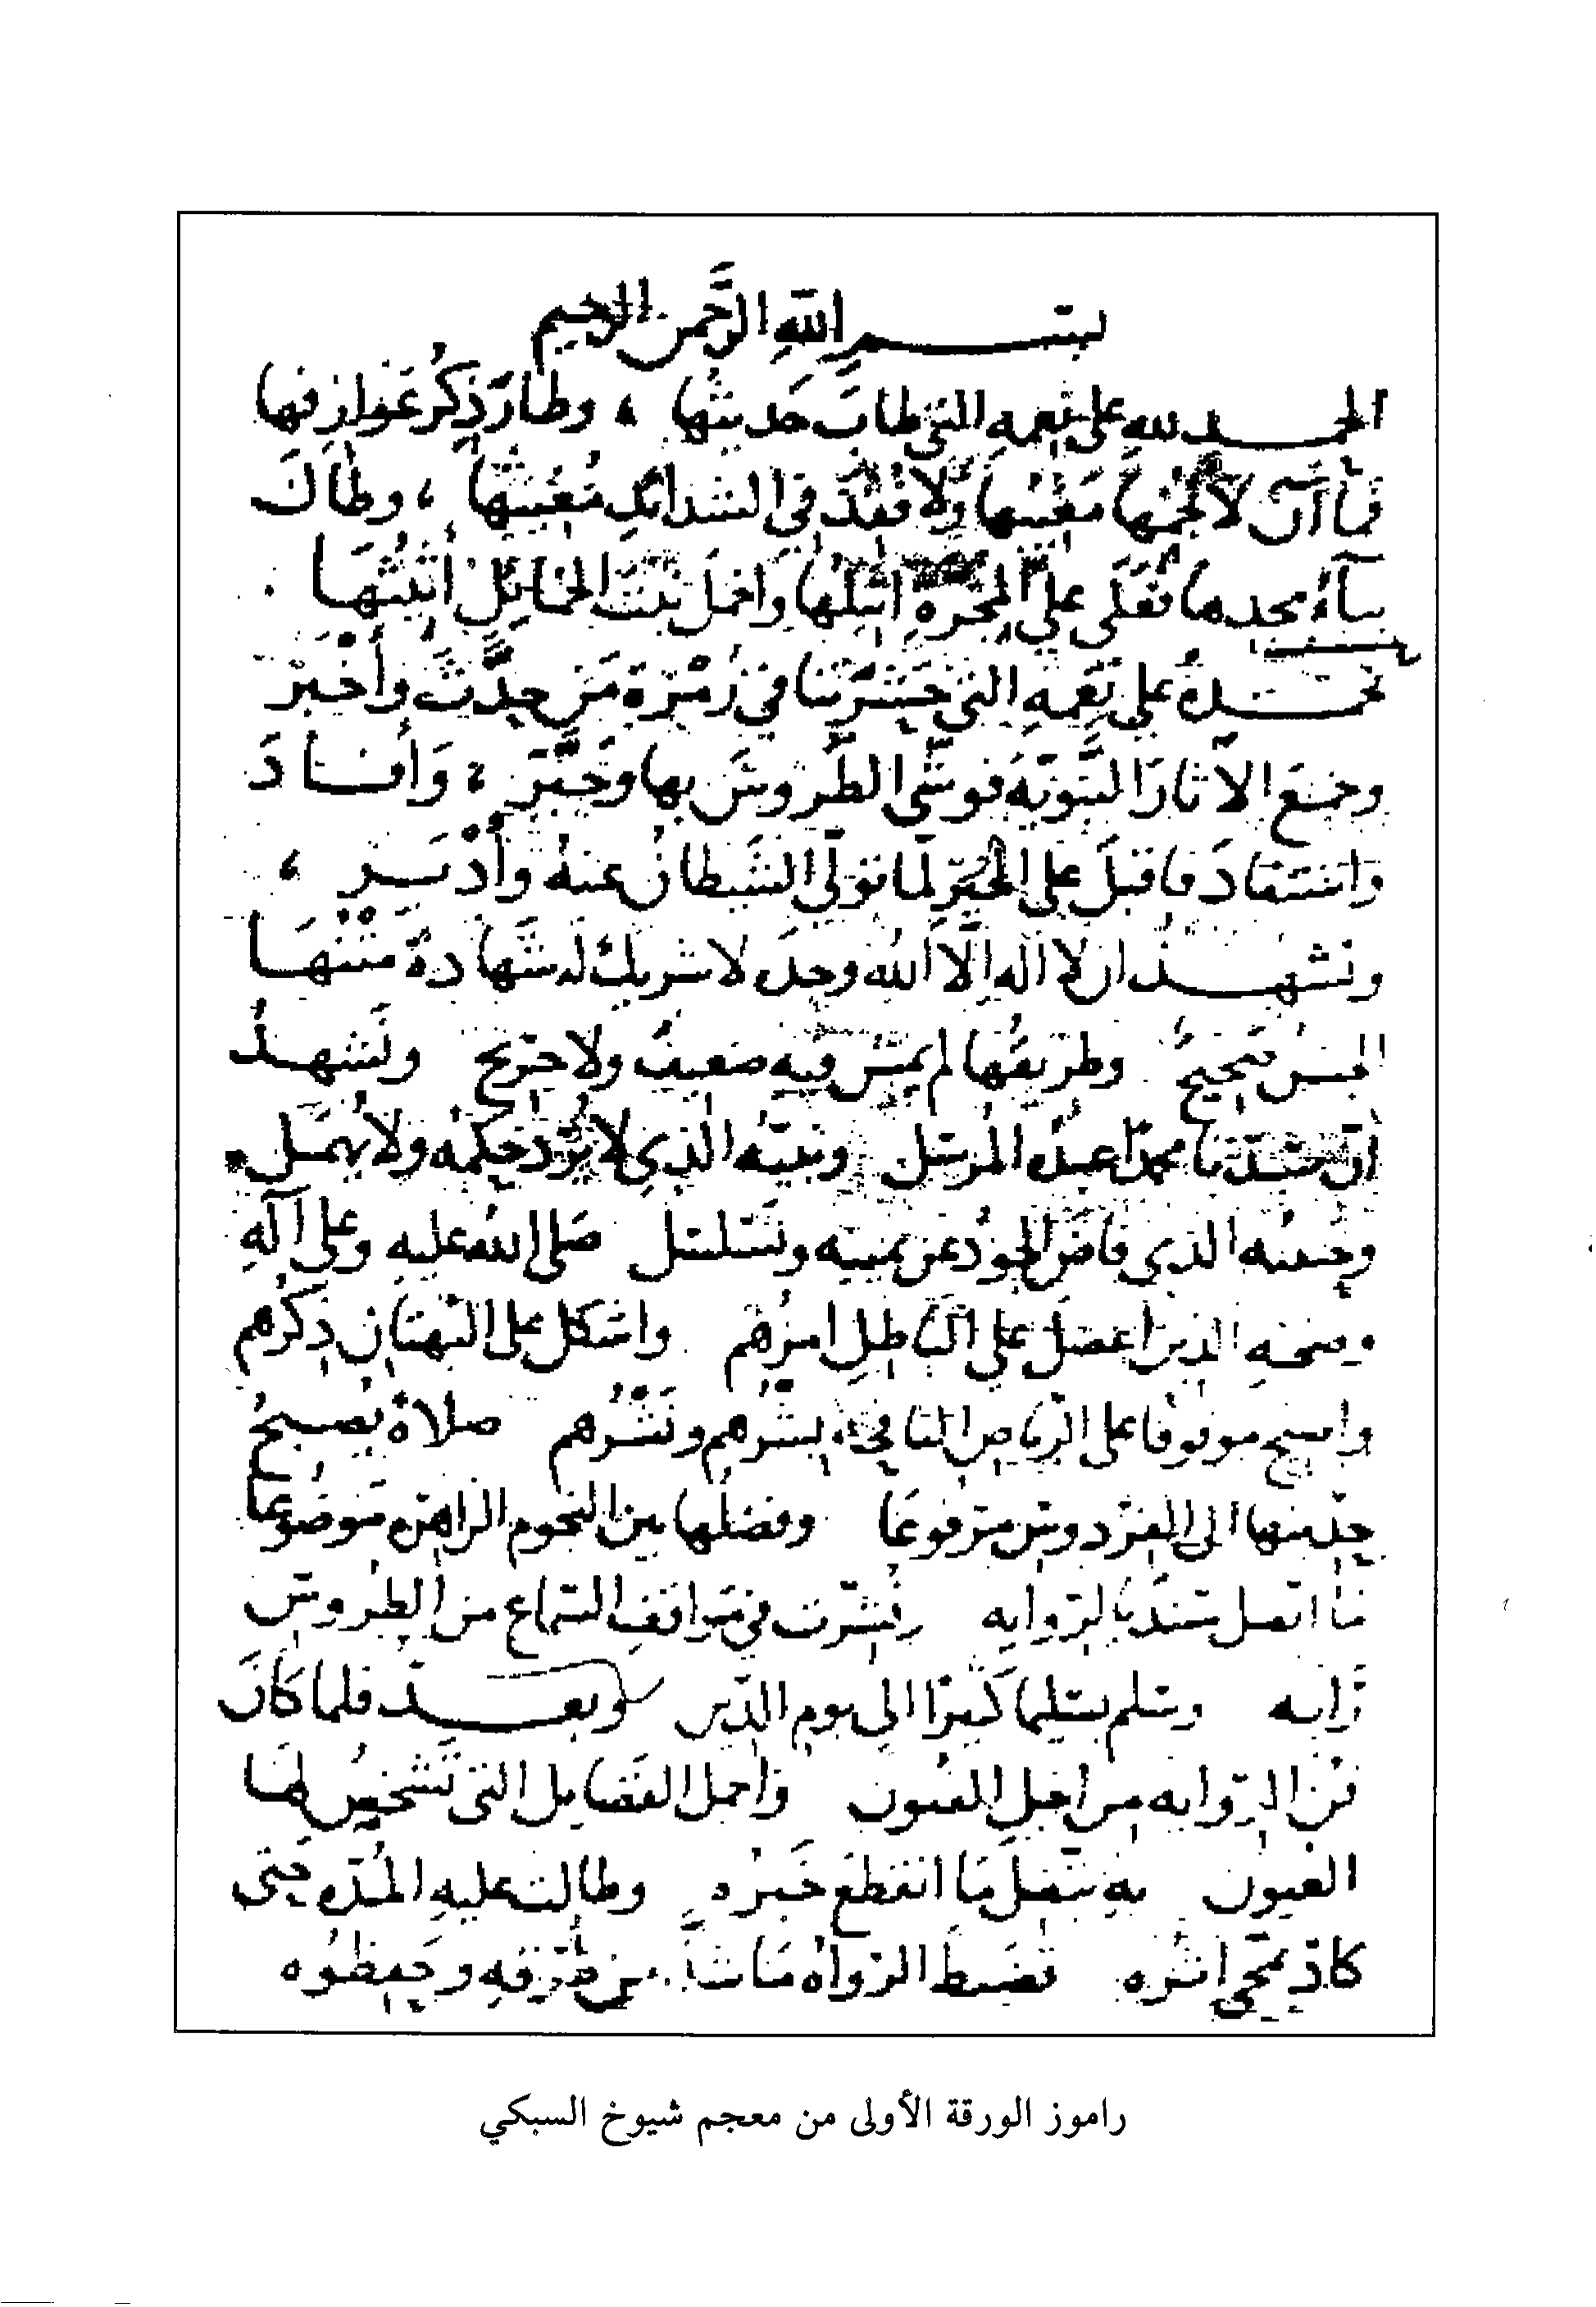 بسم الله الرحمن الرحيم
الحمد لله على نعمه التي طاب حديثها ، وطار ذكر عوارفها
ولا فقد في الشدائد مغيثها ، وطال
بناء مجدها فعلى على المجرة اثيلها واخمل نبت الخمائل أثيثها
نحمده على نعمه التي حشرتنا في زمرة من حدث وأخبر
وجمع الاثار النبوية فوشى الطروس بها وحبر ، وأفاد
واستفاد فاقبل على الخير لما تولى الشيطان عنه وأدبر ،
ونشهد ان لا اله إلا الله وحده لا شريك له شهادة متنها
الحسن صحيح وطريقها لم يمس فيه ضعيف ولا جريح ونشهد
أن سيدنا محمدا عبده المرسل ونبيه الذي لا يرد حكمه ولا يهمل
وصفيه الذي فاض الجود عن يمينه وتسلسل صلى الله عليه وعلى آله
وصحبه الذين اعضل على الباطل امرهم واشكل على البهتان ذكرهم
واصبح موقوفا على الرياض بشرهم ونشرهم صلاة يصبح
حديثها الى الفردوس مرفوعا وفضلها بين النجوم الزاهرة موضوعا
ما اتصل سند بالرواية ونشرت في مواقف السماع من الطروس
راية وسلم تسليما كثيرا الى يوم الدين وبعد فلما كان
فن الرواية من اجل الفنون واجمل الفضايل التي تشخص لها
العيون به يتصل ما انقطع خبره وطالت عليه المدة حتى
كاد يمحى اثره فضبط الرواة ما شذ من طرقه وحفظوه
راموز الورقة الأولى من معجم شيوخ السبكي